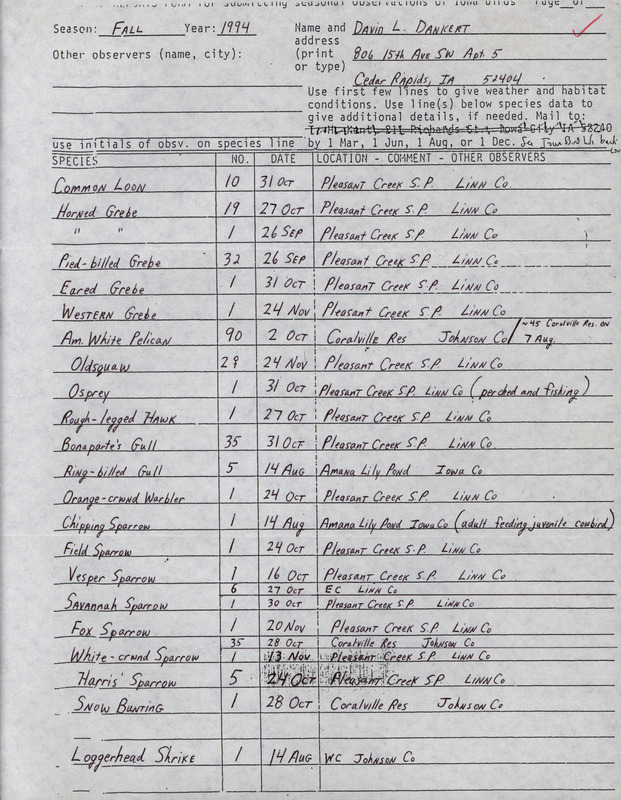 REPORTS FORM for submitting seasonal observations of Iowa birds Page of
Season: FALL Year: 1994 Name and DAVID L. DANKERT
address
Other observers (name, city): (print 806 15th Ave SW Apt. 5
or type)
Cedar Rapids, IA 52404
Use first few lines to give weather and habitat
conditions. Use line(s) below species data to
give additional details, if needed. Mail to:
use initials of obsv. on species line by 1 Mar, 1 Jun, 1 Aug, or 1 Dec. See Iowa Bird Life back
SPECIES NO. DATE LOCATION - COMMENT - OTHER OBSERVERS
Common Loon 10 31 Oct Pleasant Creek S.P. Linn Co.
Horned Grebe 19 27 Oct Pleasant Creek S.P. Linn Co
" " 1 26 Sep Pleasant Creek S.P. Linn Co
Pied-billed Grebe 32 26 Sep Pleasant Creek S.P. Linn Co
Eared Grebe 1 31 Oct Pleasant Creek S.P. Linn Co
Western Grebe 1 24 Nov Pleasant Creek S.P. Linn Co
Am. White Pelican 90 2 Oct Coralville Res Johnson Co / ~45 Coralville Res. on 7 Aug.
Oldsquaw 2♀ 24 Nov Pleasant Creek S.P. Linn Co
Osprey 1 31 Oct Pleasant Creek S.P. Linn Co (perched and fishing)
Rough-legged Hawk 1 27 Oct Pleasant Creek S.P. Linn Co
Bonaparte's Gull 35 31 Oct Pleasant Creek S.P. Linn Co.
Ring-billed Gull 5 14 Aug Amana Lily Pond Iowa Co
Orange-crwnd Warbler 1 24 Oct Pleasant Creek S.P. Linn Co
Chipping Sparrow 1 14 Aug Amana Lily Pond Iowa Co (adult feeding juvenile cowbird)
Field Sparrow 1 24 Oct Pleasant Creek S.P. Linn Co
Vesper Sparrow 1 16 Oct Pleasant Creek S.P. Linn Co
6 27 Oct EC Linn Co
Savannah Sparrow 1 30 Oct Pleasant Creek S.P. Linn Co
Fox Sparrow 1 20 Nov Pleasant Creek S.P. Linn Co
35 28 Oct Coralville Res Johnson Co
White-crwnd Sparrow 1 13 Nov Pleasant Creek S.P. Linn Co
Harris' Sparrow 5 24 Oct Pleasant Creek SP Linn Co
Snow Bunting 1 28 Oct Coralville Res Johnson Co
Loggerhead Shrike 1 14 Aug WC Johnson Co